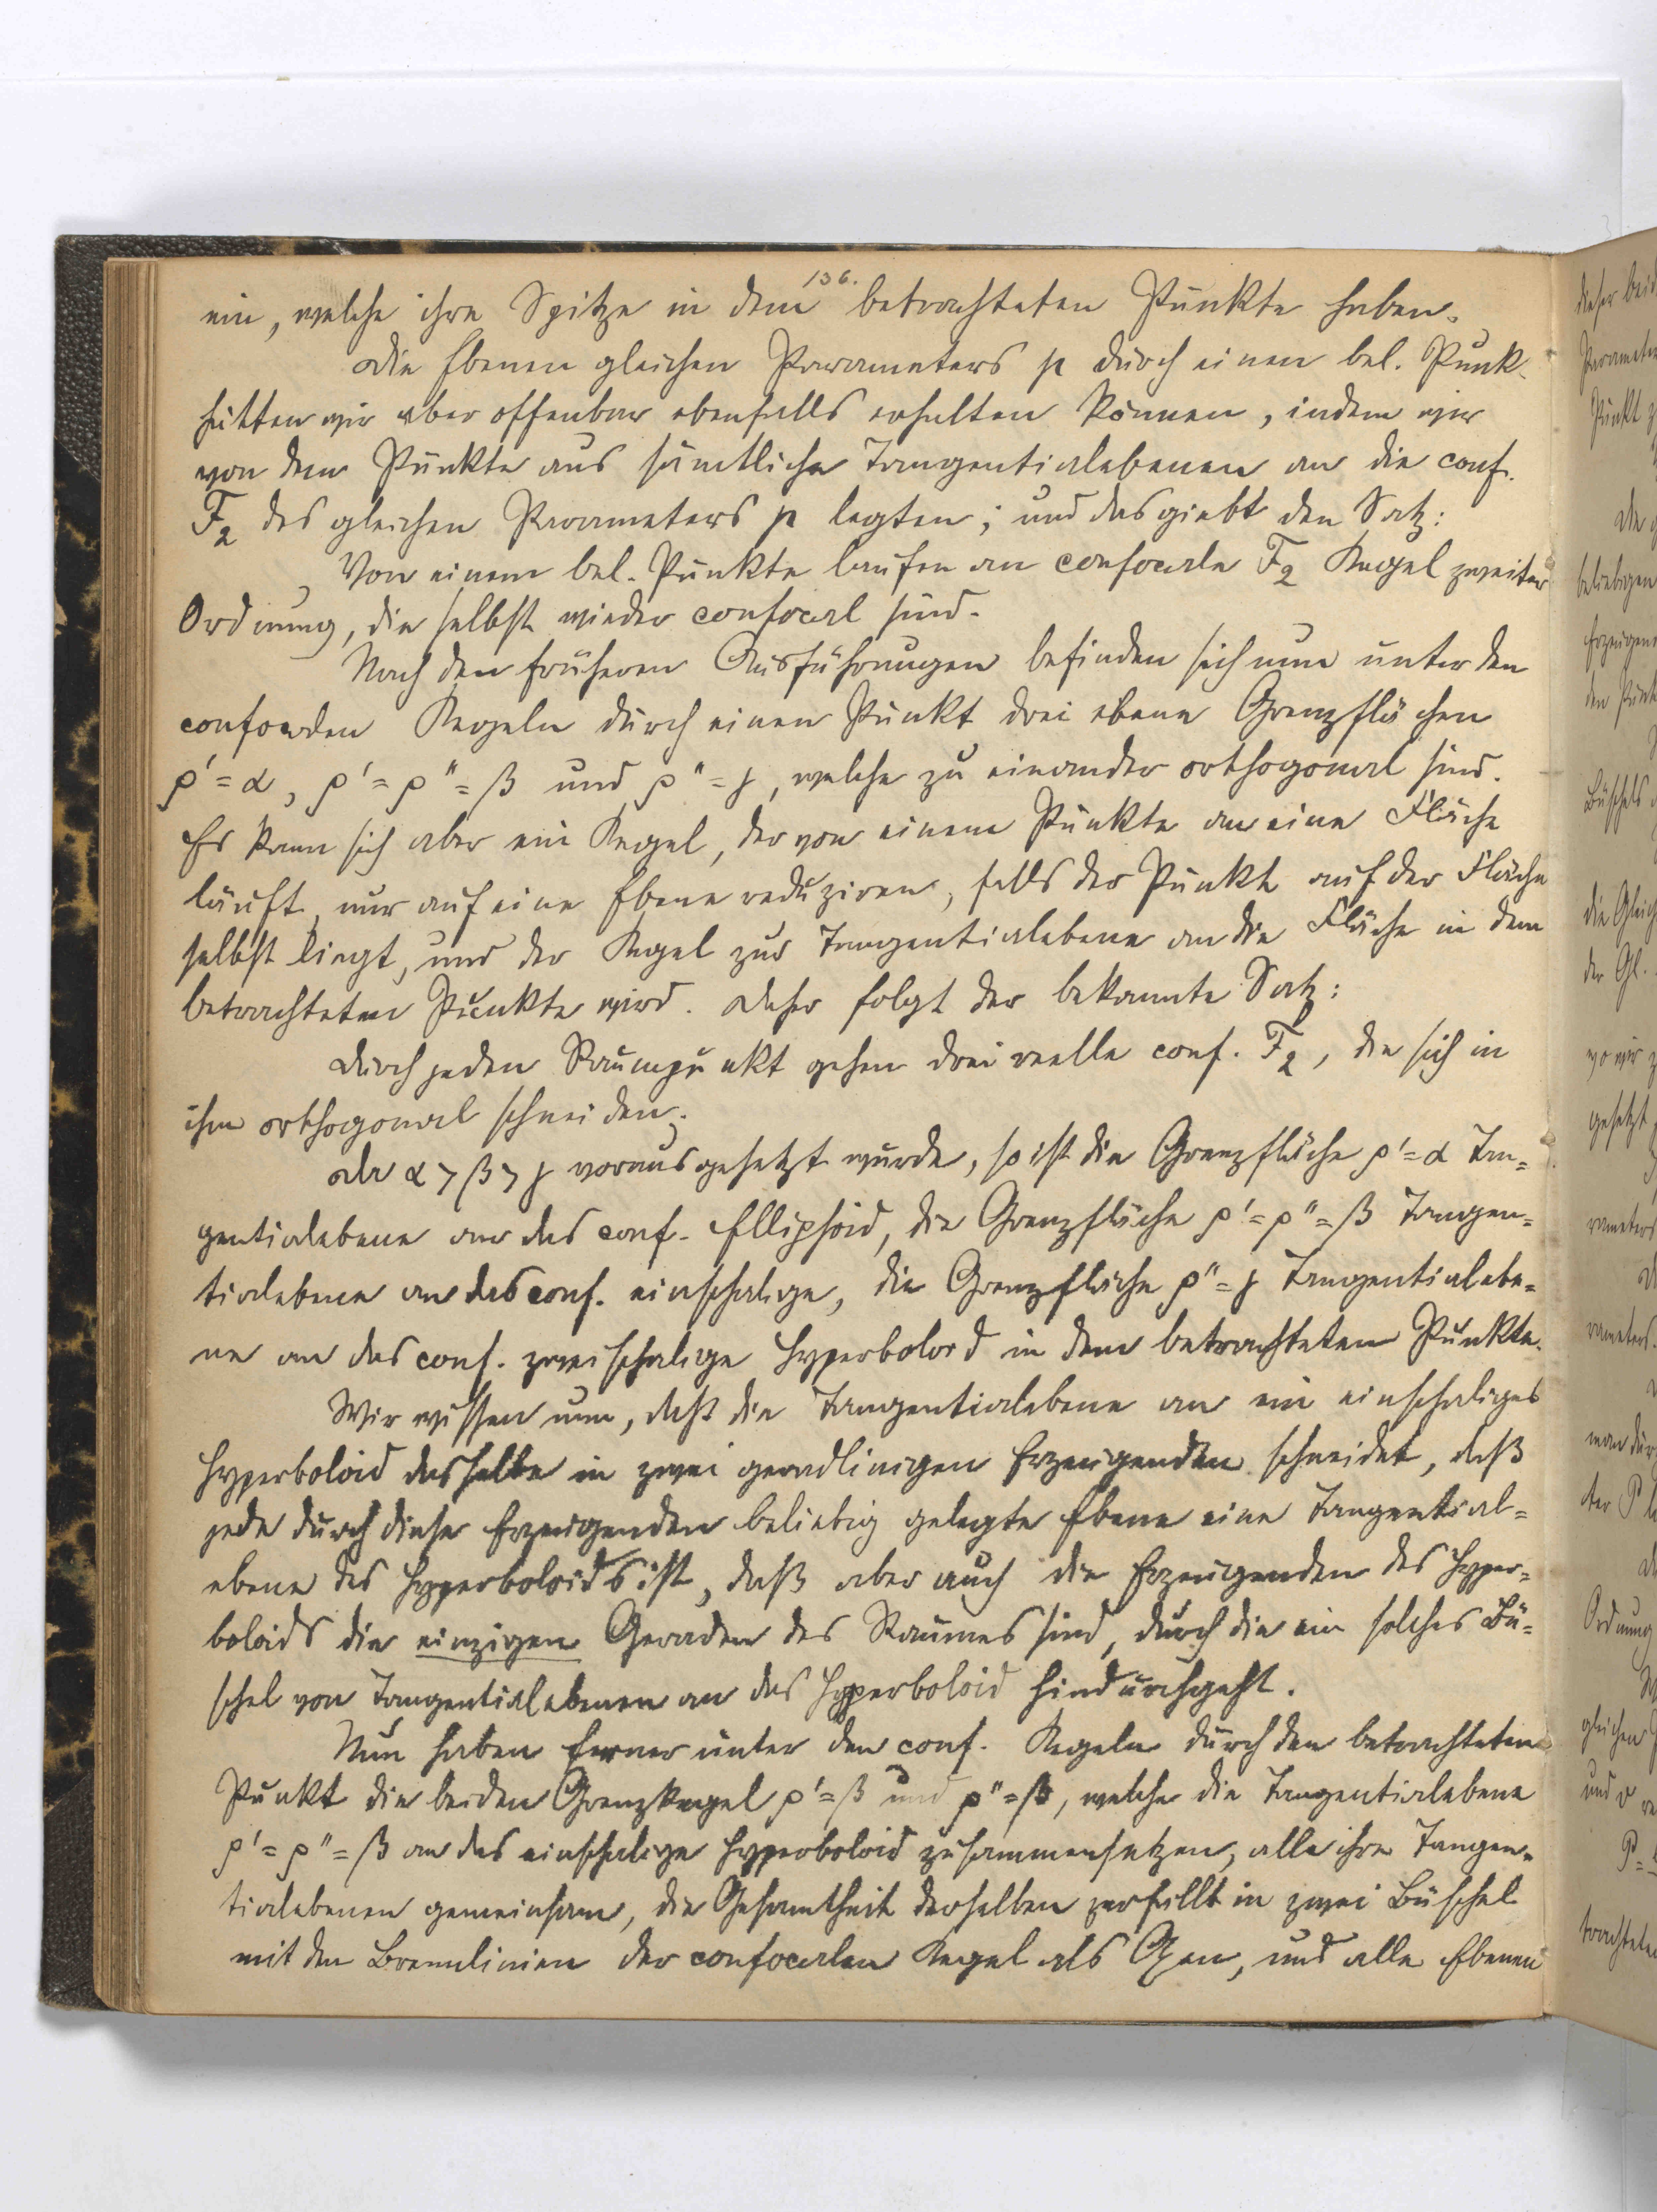 136.
ein, welche ihre Spitze in dem betrachteten Punkte haben.
Die Ebenen gleichen Parameters p durch einen bel. Punk
hätten wir aber offenbar ebenfalls erhalten können, indem wir
von dem Punkte aus sämtliche Tangentialebenen an die conf.
F₂ des gleichen Parameters p legten; und das giebt den Satz:
Von einem bel. Punkte laufen an confocale F₂ Kegel zweiter
Ordnung, die selbst wieder confocal sind.
Nach den früheren Ausführungen befinden sich nun unter den
confocalen Kegeln durch einen Punkt drei ebene Grenzflächen
ρ' = α, ρ' = ρ" = β und ρ" = γ, welche zu einander orthogonal sind.
Es kann sich aber ein Kegel, der von einem Punkte an eine Fläche
läuft, nur auf eine Ebene reduziren, falls der Punkt auf der Fläche
selbst liegt, und der Kegel zur Tangentialebene an die Fläche in dem
betrachteten Punkte wird. Daher folgt der bekannte Satz:
Durch jeden Raumpunkt gehen drei reelle conf. F₂, die sich in
ihm orthogonal schneiden.
Da α > β > γ vorausgesetzt wurde, so ist die Grenzfläche ρ' = α Tan=
gentialebene an das conf. Ellipsoid, die Grenzfläche ρ' = ρ" = β Tangen=
tialebene an das conf. einschalige, die Grenzfläche ρ" = γ Tangentialebe=
ne an das conf. zweischalige Hyperboloid in dem betrachteten Punkte.
Wir wissen nun, daß die Tangentialebene an ein einschaliges
Hyperboloid dasselbe in zwei geradlinigen Erzeugenden schneidet, daß
jede durch diese Erzeugenden beliebig gelegte Ebene eine Tangential=
ebene des Hyperboloids ist, daß aber auch die Erzeugenden des Hyper=
boloids die einzigen Geraden des Raumes sind, durch die ein solches Bü=
schel von Tangentialebenen an das Hyperboloid hindurchgeht.
Nun haben ferner unter den conf. Kegeln durch den betrachteten
Punkt die beiden Grenzkegel ρ' = β und ρ" = β, welche die Tangentialebene
ρ' = ρ" = β an das einschalige Hyperboloid zusammensetzen, alle ihre Tangen=
tialebenen gemeinsam, die Gesamtheit derselben zerfällt in zwei Büschel
mit den Brennlinien der confocalen Kegel als Axen, und alle Ebenen